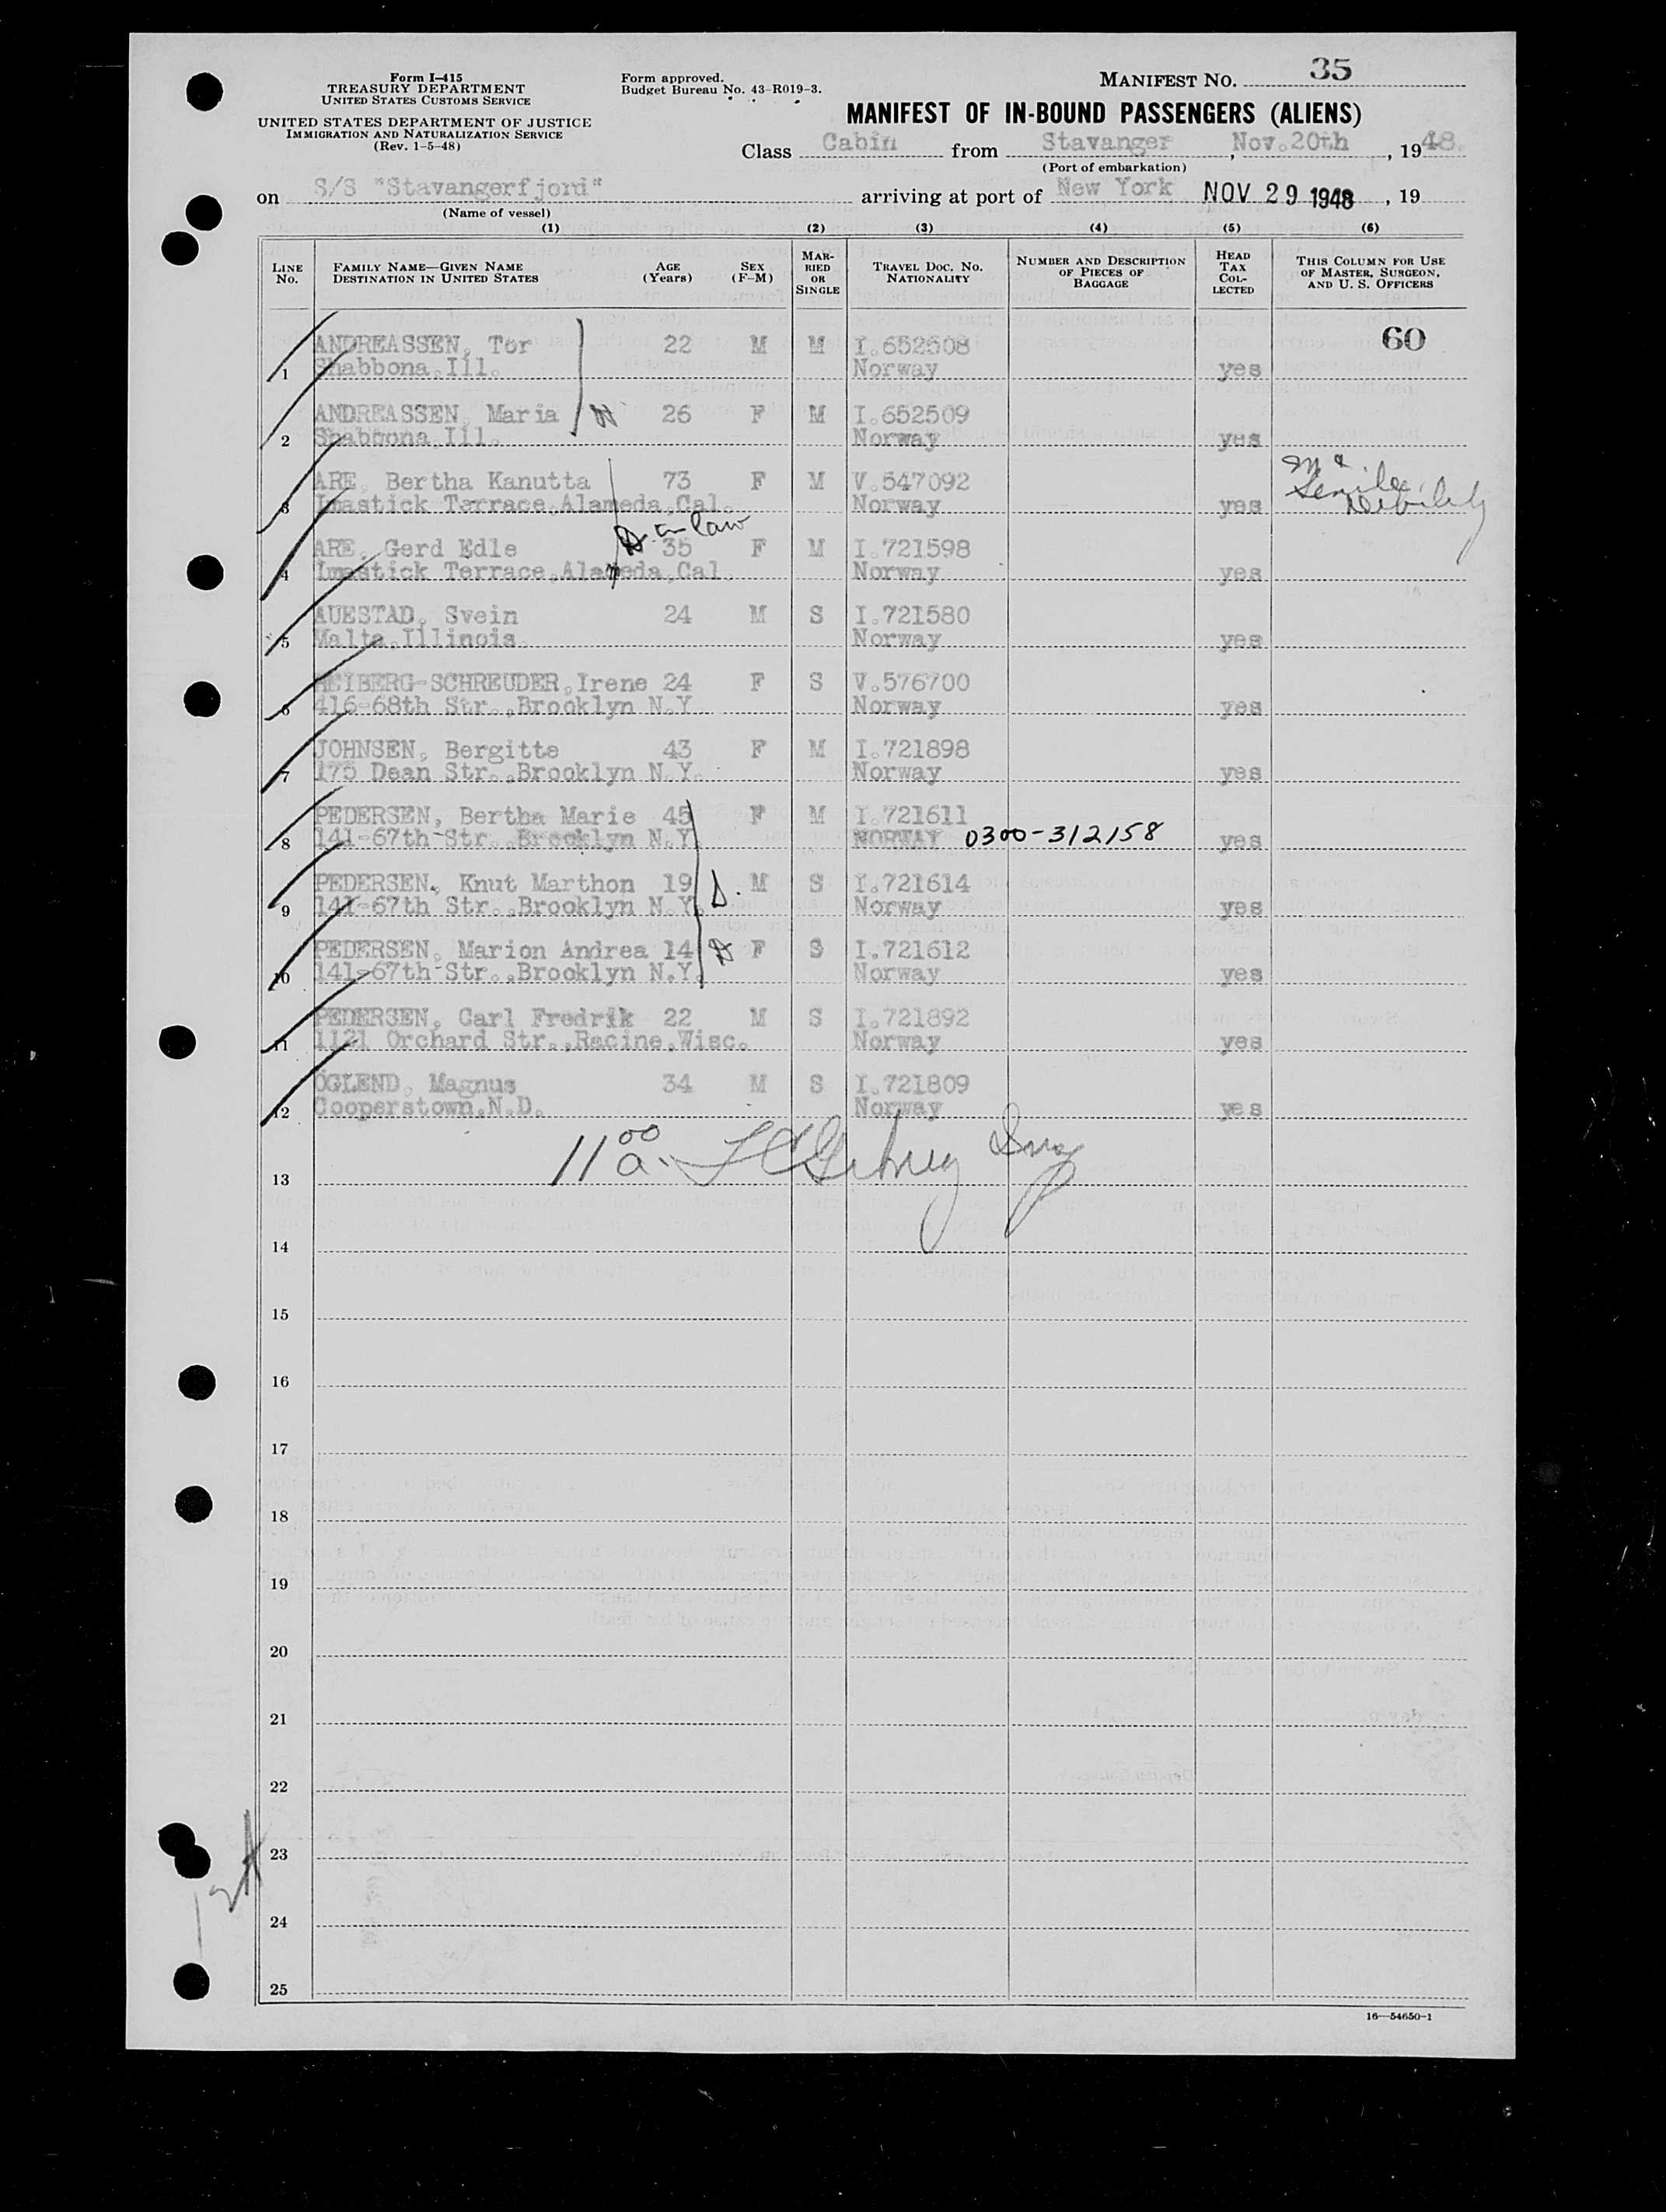 Form I-415
TREASURY DEPARTMENT
UNITED STATES CUSTOMS SERVICE
UNITED STATES DEPARTMENT OF JUSTICE
IMMIGRATION AND NATURALIZATION SERVICE
(Rev. 1-5-48)
Form approved.
Budget Bureau No. 43-R019-3.
MANIFEST NO. 35
MANIFEST OF IN-BOUND PASSENGERS (ALIENS)
Class Cabin from Stavanger, Nov.20th, 1948.
(Port of embarkation)
on S/S "Stavangerfjord" arriving at port of New York NOV 29 1948, 19
(Name of vessel)
(1) (2) (3) (4) (5) (6)
LINE NO. FAMILY NAME—GIVEN NAME DESTINATION IN UNITED STATES AGE (Years) SEX (F-M) MARRIED OR SINGLE TRAVEL DOC. NO. NATIONALITY NUMBER AND DESCRIPTION OF PIECES OF BAGGAGE HEAD TAX COLLECTED THIS COLUMN FOR USE OF MASTER, SURGEON, AND U. S. OFFICERS
60
ANDREASSEN, Tor 22 M M I.652608
1 Shabbona, Ill. Norway yes
ANDREASSEN, Maria W 26 F M I.652509
2 Shabbona, Ill. Norway yes
ARE, Bertha Kanutta 73 F M V.547092
3 Imastick Terrace, Alameda, Cal. Norway yes Senile Debility
D-in-law
ARE, Gerd Edle 35 F M I.721598
4 Imastick Terrace, Alameda, Cal. Norway yes
AUESTAD, Svein 24 M S I.721580
5 Malta, Illinois. Norway yes
HEIBERG-SCHREUDER, Irene 24 F S V.576700
6 416-68th Str., Brooklyn N.Y. Norway yes
JOHNSEN, Bergitte 43 F M I.721898
7 175 Dean Str., Brooklyn N.Y. Norway yes
PEDERSEN, Bertha Marie 45 F M I.721611
8 141-67th Str., Brooklyn N.Y. NORWAY 0300-312158 yes
PEDERSEN, Knut Marthon 19 S. M S I.721614
9 141-67th Str., Brooklyn N.Y. Norway yes
PEDERSEN, Marion Andrea 14 D F S I.721612
10 141-67th Str., Brooklyn N.Y. Norway yes
PEDERSEN, Carl Fredrik 22 M S I.721892
11 1121 Orchard Str., Racine, Wisc. Norway yes
ÖGLEND, Magnus 34 M S I.721809
12 Cooperstown, N.D. Norway yes
11 00 a.
13
14
15
16
17
18
19
20
21
22
23
24
25
16—54650-1